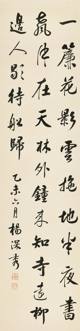 一簾花影雲拖地半夜書
聲月在天林外鐘來知寺遠柳
邊人歇待船歸
乙未六月楊深秀